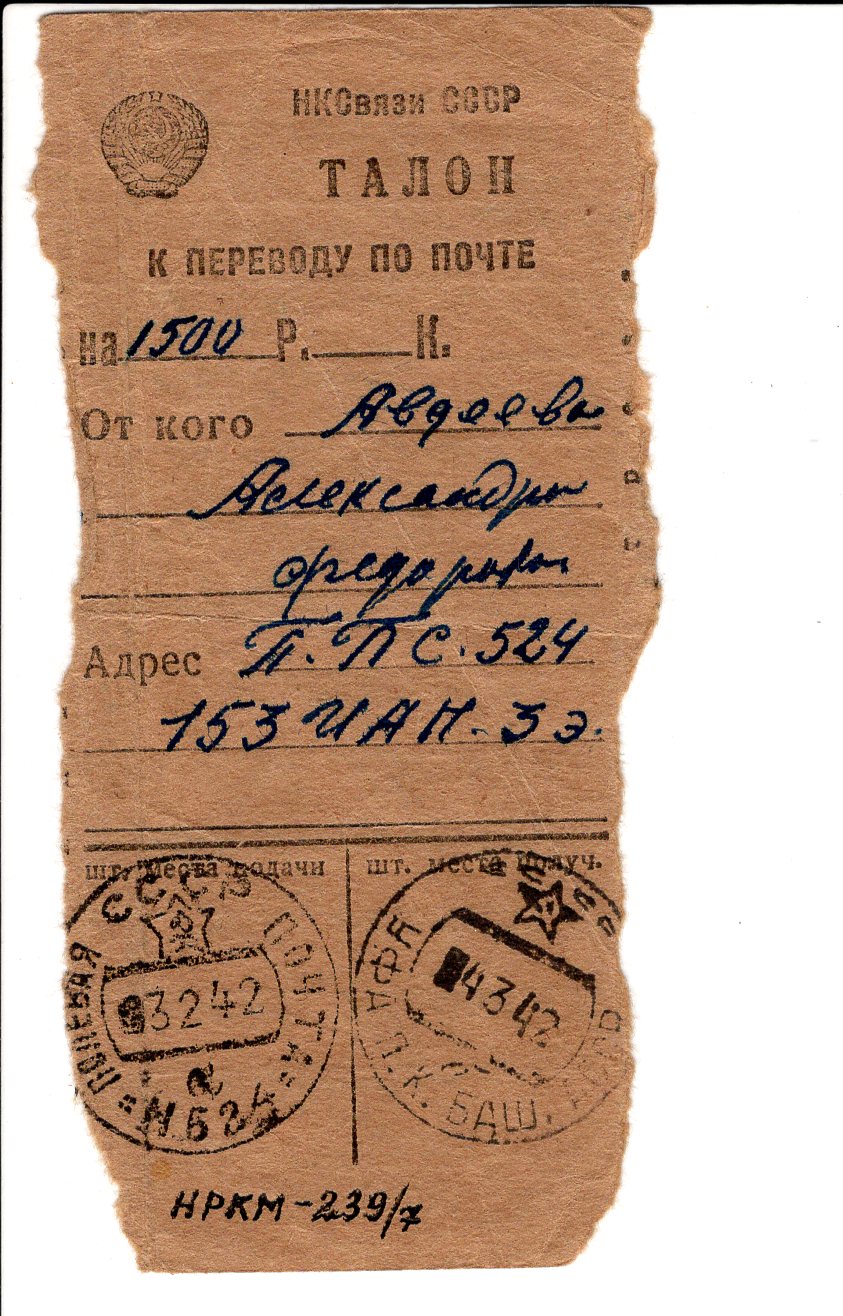 НКСвязи СССР
ТАЛОН
К ПЕРЕВОДУ ПО ПОЧТЕ
на 1500 Р. К.
От кого Авдеева
Александра
Федоровича
Адрес П.ПС.524
153 ИАП-3э.
шт. места подачи шт. места получ.
СССР
ПОЛЕВАЯ ПОЧТА
3242
а
№524
УФА П.К. БАШ. АССР
4342
НРКМ-239/7